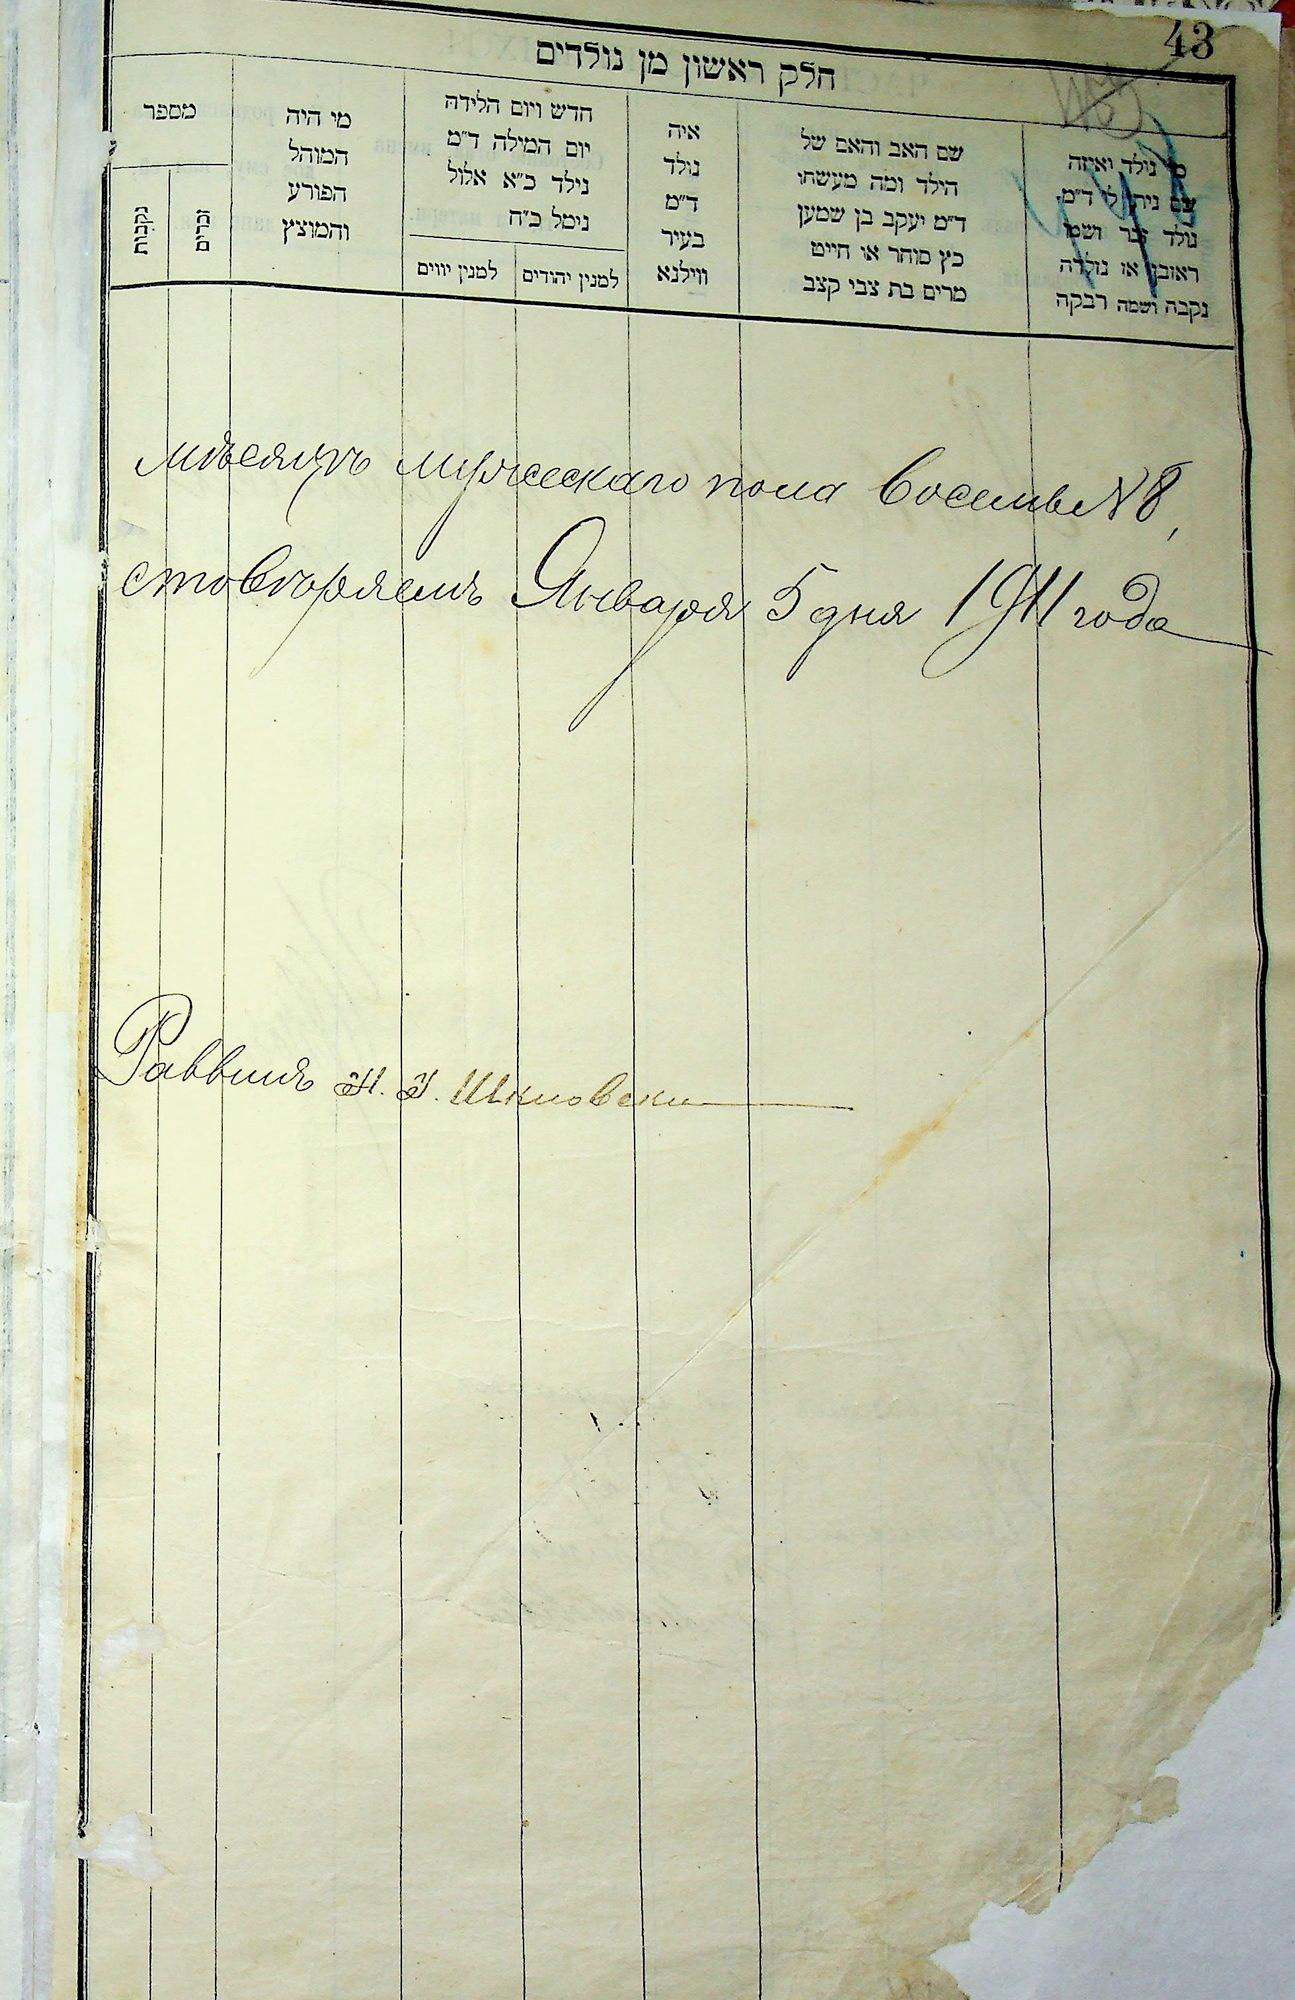 43
חלק ראשון מן נולדים
מי נולד ואיזה
שם ניתן לו ד״מ
נולד זכר ושמו
ראובן או נולדה
נקבה ושמה רבקה
שם האב והאם של
הילד ומה מעשהו
ד״מ יעקב בן שמעון
כץ סוחר או חייט
מרים בת צבי קצב
איה
נולד
ד״מ
בעיר
ווילנא
חדש ויום הלידה
יום המילה ד״מ
נילד כ״א אלול
נימל כ״ח
למנין יהודים
למנין יווים
מי היה
המוהל
הפורע
והמוצץ
מספר
זכרים
נקבות
мѣсяцъ мужескаго пола восемь N 8,
Января 5 дня 1911 года
Раввинъ Шкловски